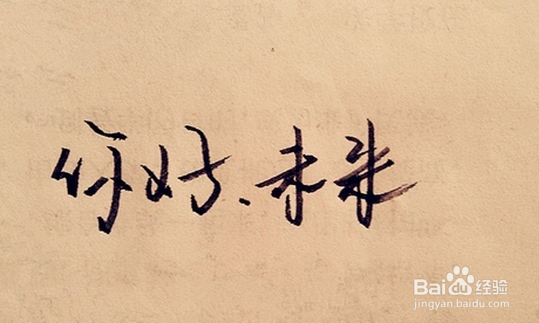 你好、未来
Baidu 经验
jingyan.baidu.com